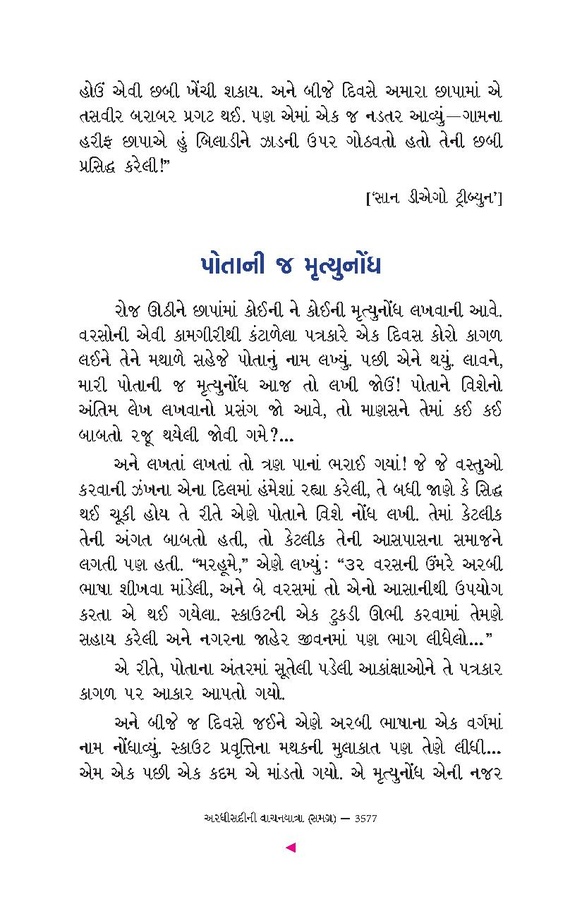 હોઉં એવી છબી ખેંચી શકાય. અને બીજે દિવસે અમારા છાપામાં એ
તસવીર બરાબર પ્રગટ થઈ. પણ એમાં એક જ નડતર આવ્યું—ગામના
હરીફ છાપાએ હું બિલાડીને ઝાડની ઉપર ગોઠવતો હતો તેની છબી
પ્રસિદ્ધ કરેલી!”
[‘સાન ડીએગો ટ્રીબ્યુન’]
પોતાની જ મૃત્યુનોંધ
રોજ ઊઠીને છાપાંમાં કોઈની ને કોઈની મૃત્યુનોંધ લખવાની આવે.
વરસોની એવી કામગીરીથી કંટાળેલા પત્રકારે એક દિવસ કોરો કાગળ
લઈને તેને મથાળે સહેજે પોતાનું નામ લખ્યું. પછી એને થયું. લાવને,
મારી પોતાની જ મૃત્યુનોંધ આજ તો લખી જોઉં! પોતાને વિશેનો
અંતિમ લેખ લખવાનો પ્રસંગ જો આવે, તો માણસને તેમાં કઈ કઈ
બાબતો રજૂ થયેલી જોવી ગમે?...
અને લખતાં લખતાં તો ત્રણ પાનાં ભરાઈ ગયાં! જે જે વસ્તુઓ
કરવાની ઝંખના એના દિલમાં હંમેશાં રહ્યા કરેલી, તે બધી જાણે કે સિદ્ધ
થઈ ચૂકી હોય તે રીતે એણે પોતાને વિશે નોંધ લખી. તેમાં કેટલીક
તેની અંગત બાબતો હતી, તો કેટલીક તેની આસપાસના સમાજને
લગતી પણ હતી. “મરહૂમે,” એણે લખ્યું : “૩૨ વરસની ઉંમરે અરબી
ભાષા શીખવા માંડેલી, અને બે વરસમાં તો એનો આસાનીથી ઉપયોગ
કરતા એ થઈ ગયેલા. સ્કાઉટની એક ટુકડી ઊભી કરવામાં તેમણે
સહાય કરેલી અને નગરના જાહેર જીવનમાં પણ ભાગ લીધેલો...”
એ રીતે, પોતાના અંતરમાં સૂતેલી પડેલી આકાંક્ષાઓને તે પત્રકાર
કાગળ પર આકાર આપતો ગયો.
અને બીજે જ દિવસે જઈને એણે અરબી ભાષાના એક વર્ગમાં
નામ નોંધાવ્યું. સ્કાઉટ પ્રવૃત્તિના મથકની મુલાકાત પણ તેણે લીધી...
એમ એક પછી એક કદમ એ માંડતો ગયો. એ મૃત્યુનોંધ એની નજર
અરધીસદીની વાચનયાત્રા (સમગ્ર) — 3577